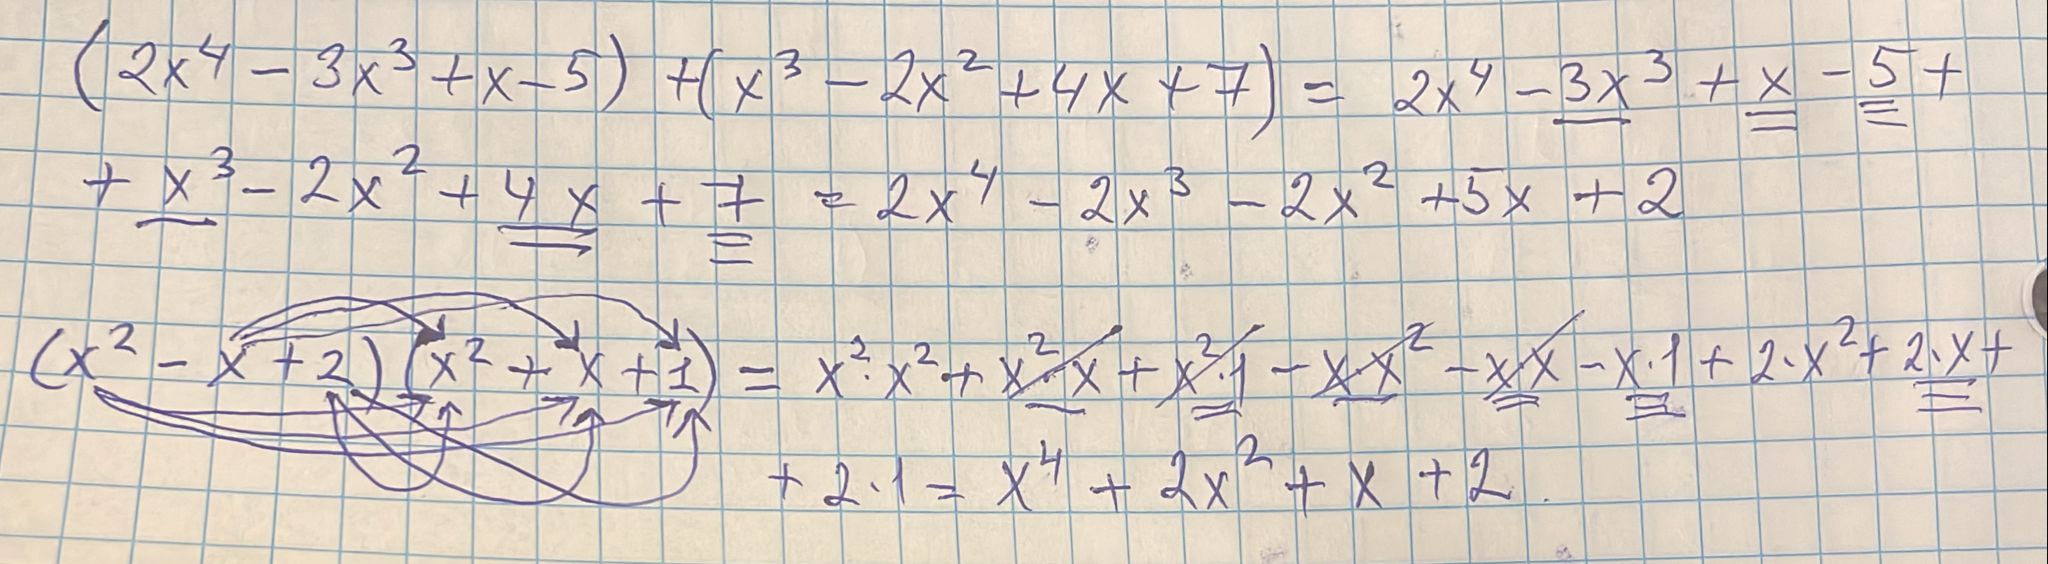 (2x⁴ - 3x³ + x - 5) + (x³ - 2x² + 4x + 7) = 2x⁴ - 3x³ + x - 5 +
+ x³ - 2x² + 4x + 7 = 2x⁴ - 2x³ - 2x² + 5x + 2
(x² - x + 2)(x² + x + 1) = x²·x² + x²·x + x²·1 - x·x² - x·x - x·1 + 2·x² + 2·x +
+ 2·1 = x⁴ + 2x² + x + 2.